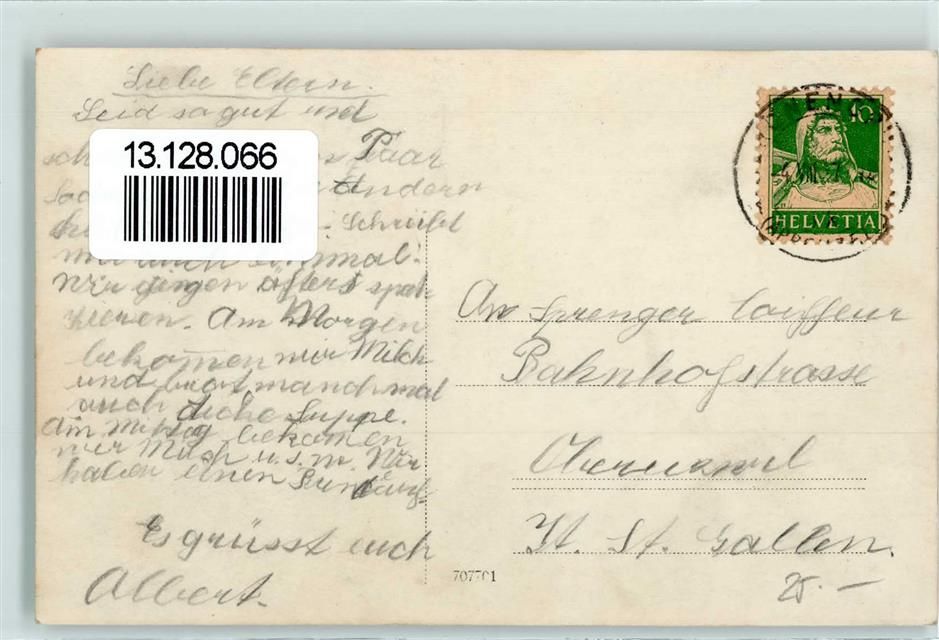 Liebe Eltern.
Seid so gut und
sch Paar
andern
Schreibt
mir auch einmal.
Wir gingen öfters spat
zieren. Am Morgen
bekomen wir Milch
und brot manchmal
auch diche Suppe.
Am Mittag bekomen
wir Milch u.s.w. Wir
haben einen
Es grüsst euch
Albert.
13.128.066
10
HELVETIA
An Sprenger Coiffeur
Bahnhofstrasse
Oberuzwil
Kt. St. Gallen.
25.—
707701